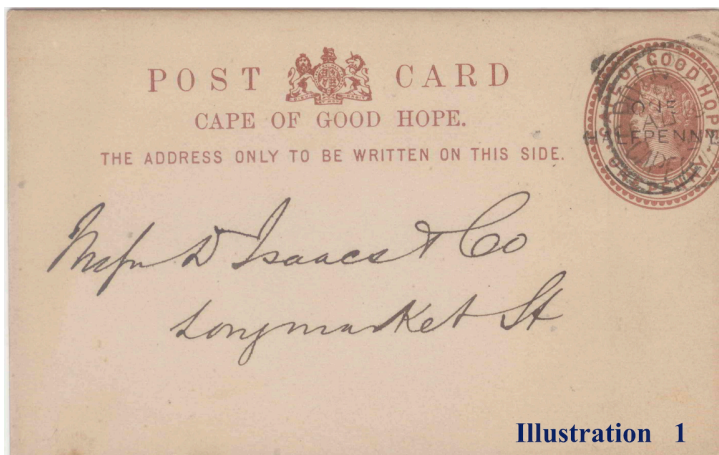 POST CARD
CAPE OF GOOD HOPE.
THE ADDRESS ONLY TO BE WRITTEN ON THIS SIDE.
CAPE OF GOOD HOPE
ONE
HALFPENNY
ONE PENNY
Messrs D Isaacs & Co
Longmarket St
Illustration 1